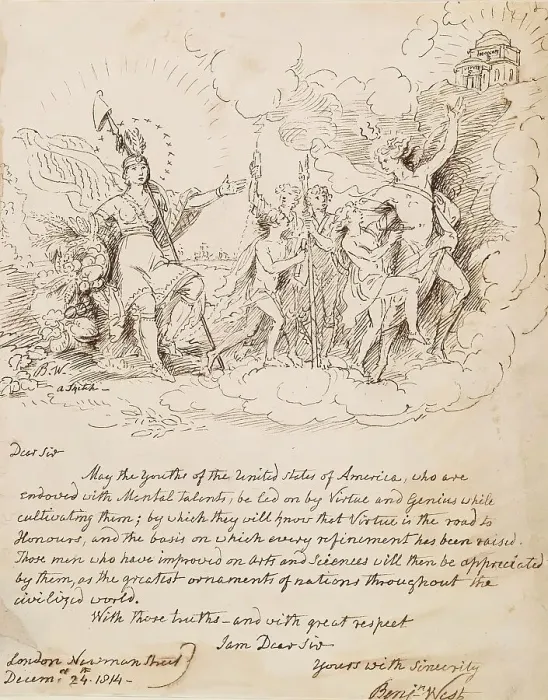 B.W.
a Sketch —
Dear Sir
May the Youths of the United States of America, who are
endowed with Mental talents, be led on by Virtue and Genius while
cultivating them; by which they will know that Virtue is the road to
Honours, and the basis on which every refinement has been raised.
Those men who have improved on Arts and Sciences will then be appreciated
by them, as the greatest ornaments of nations throughout the
civilized world.
With those truths — and with great respect
I am Dear Sir
London Newman Street
Yours with Sincerity
Decem.r 24th 1814 —
Benjn West